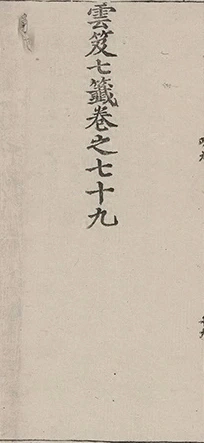 雲笈七籤卷之七十九